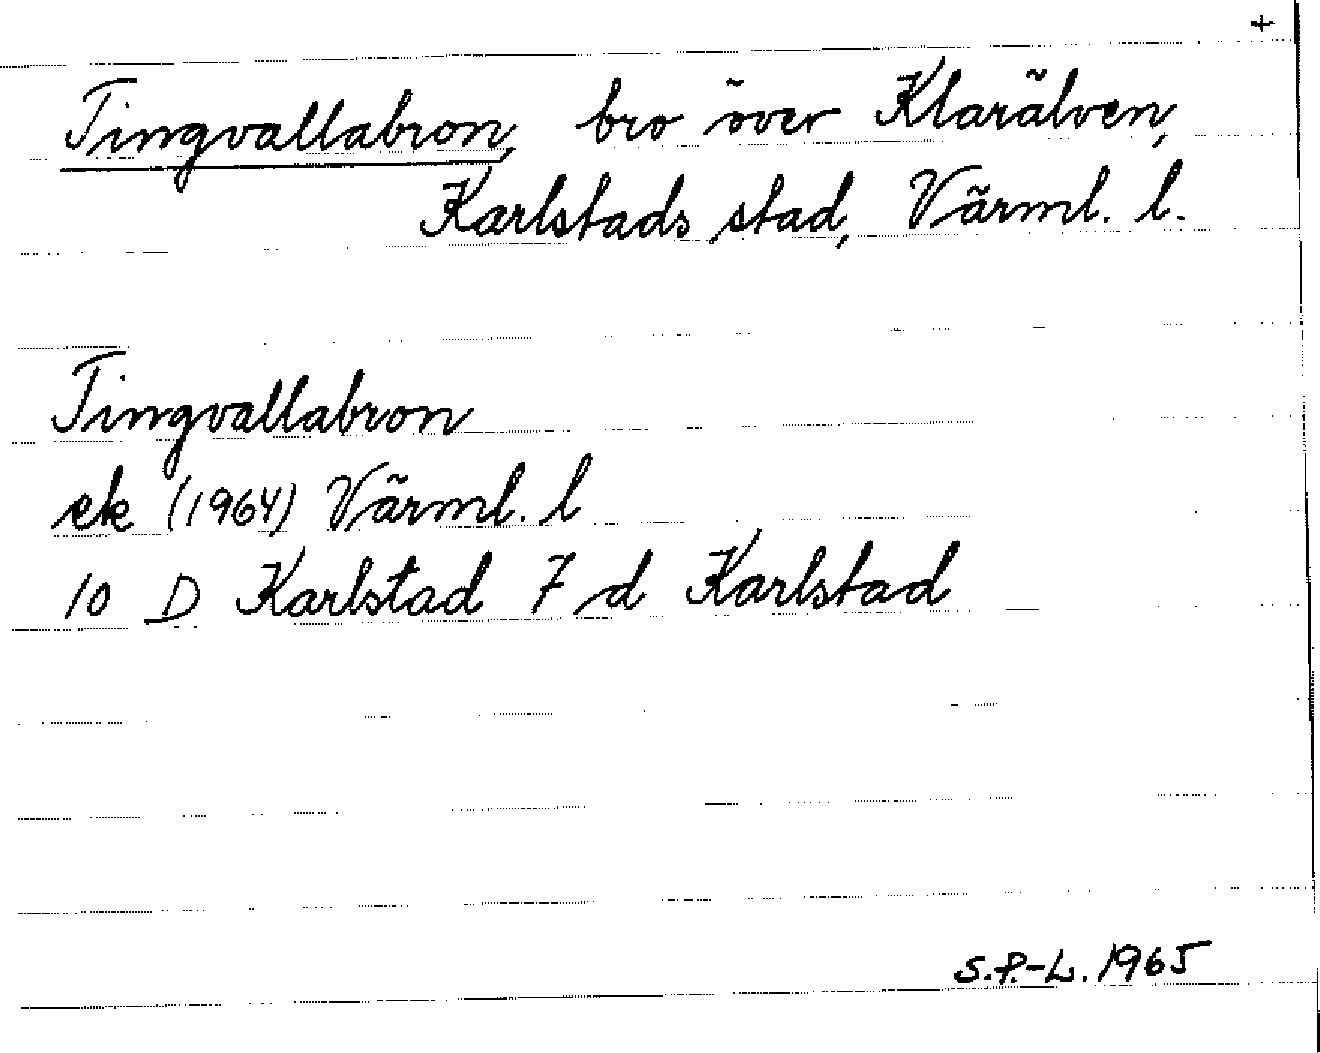 +
Tingvallabron, bro över Klarälven,
Karlstads stad, Värml. l.
Tingvallabron
ek (1964) Värml. l
10 D Karlstad 7 d Karlstad
S.P.-L. 1965